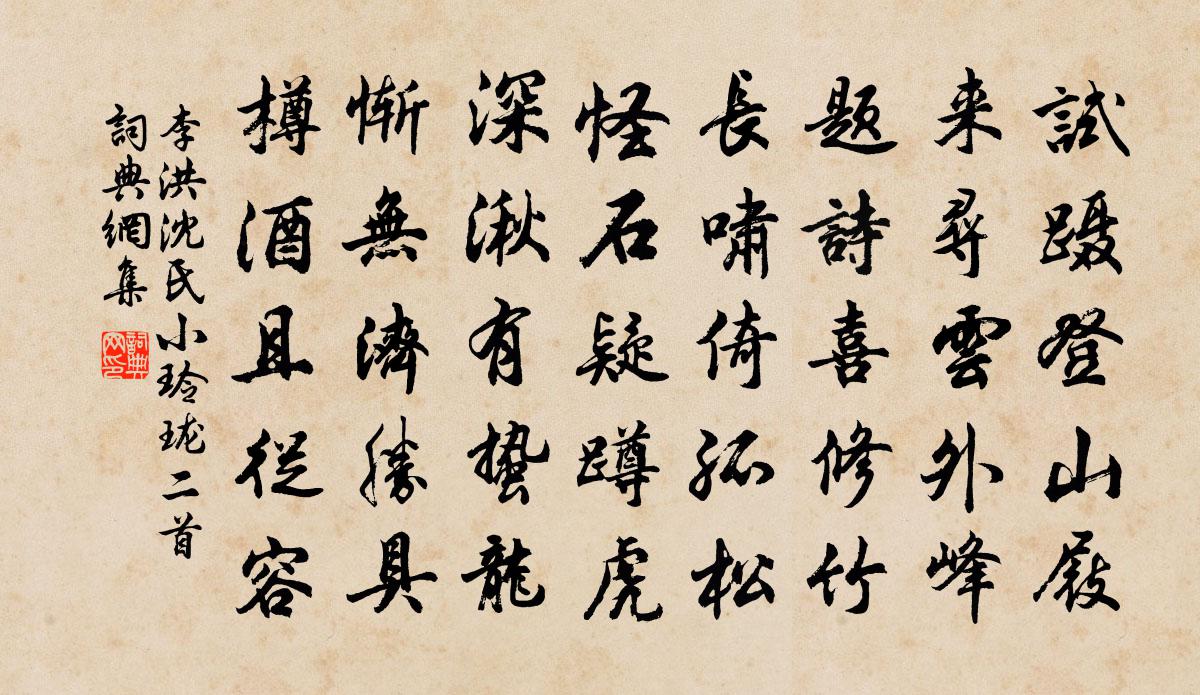 試蹑登山屐
来尋雲外峰
題詩喜修竹
長嘯倚孤松
怪石疑蹲虎
深湫有蛰龍
慚無濟勝具
樽酒且從容
李洪沈氏小玲珑二首
詞典網集
詞典网印